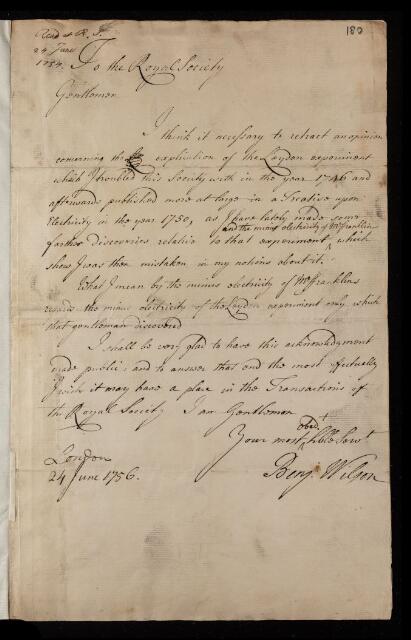 Read at R. S.
24 June
1756.
180
To the Royal Society
Gentlemen
I think it necessary to retract an opinion
concerning the explication of the Leyden experiment
which I troubled this Society with in the year 1746 and
afterwards published more at large in a Treatise upon
Electricity in the year 1750, as I have lately made some
and the minus electricity of Mr Franklin
farther discoveries relative to that experiment, which
shew I was then mistaken in my notions about it.
What I mean by the minus electricity of Mr Franklins
regards the minus electricity of the Leyden experiment only which
that gentleman discovered
I shall be very glad to have this acknowledgment
made public; and to answer that end the most effectually
I wish it may have a place in the Transactions of
the Royal Society I am Gentlemen
obedt
Your most hble Servt
London
24 June 1756.
Benj. Wilson